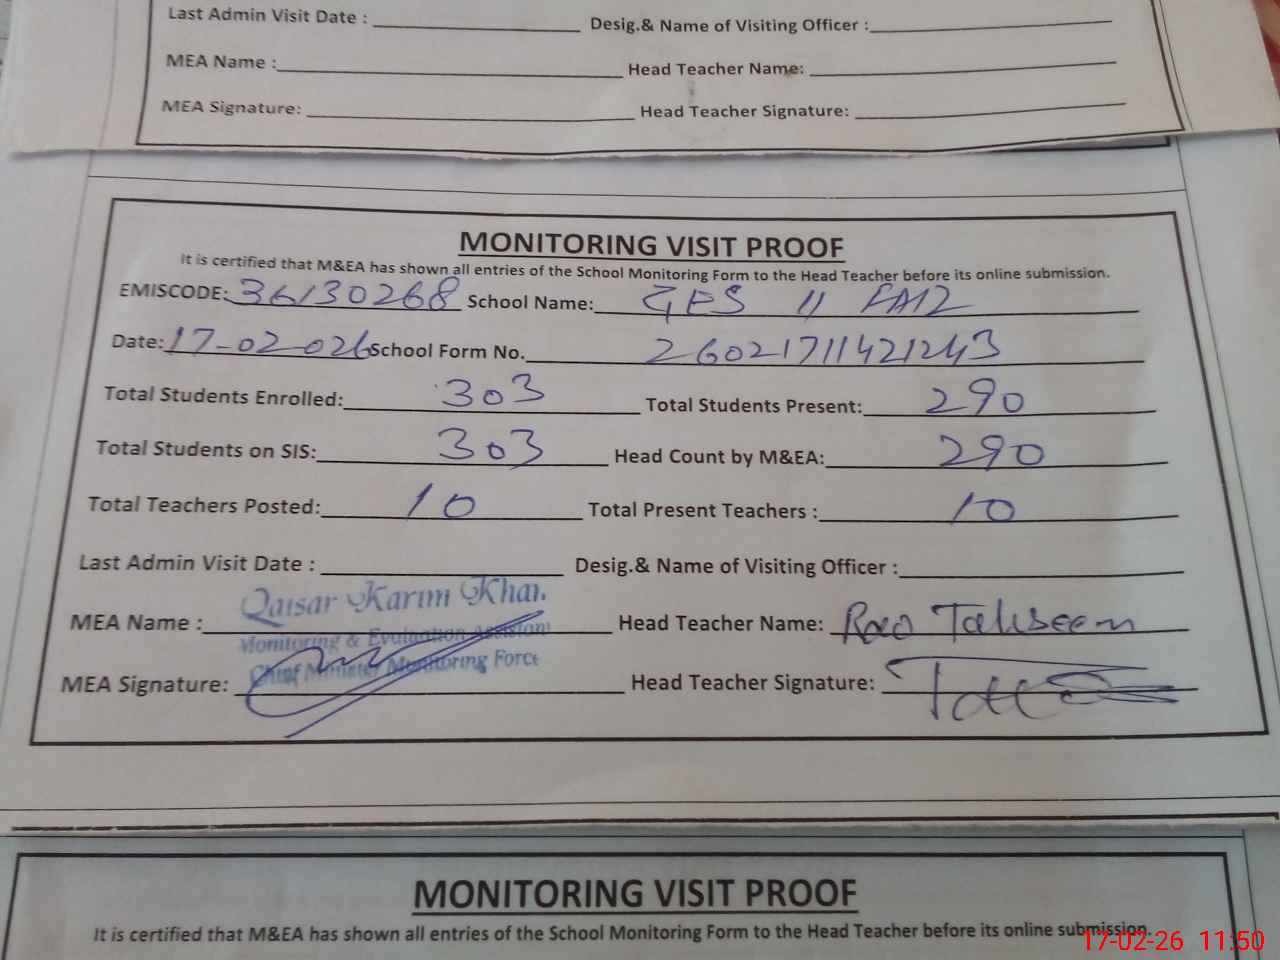 Last Admin Visit Date : Desig.& Name of Visiting Officer :
MEA Name : Head Teacher Name:
MEA Signature: Head Teacher Signature:
MONITORING VISIT PROOF
It is certified that M&EA has shown all entries of the School Monitoring Form to the Head Teacher before its online submission.
EMISCODE: 36130268 School Name: GES 11 FAIZ
Date: 17-02-026 School Form No. 26021711421243
Total Students Enrolled: 303 Total Students Present: 290
Total Students on SIS: 303 Head Count by M&EA: 290
Total Teachers Posted: 10 Total Present Teachers : 10
Last Admin Visit Date : Desig.& Name of Visiting Officer :
Qaisar Karim Khan
MEA Name : Head Teacher Name: Rao Tahseem
Monitoring & Evaluation Assistant
Chief Minister Monitoring Force
MEA Signature: Head Teacher Signature:
MONITORING VISIT PROOF
It is certified that M&EA has shown all entries of the School Monitoring Form to the Head Teacher before its online submission.
17-02-26 11:50